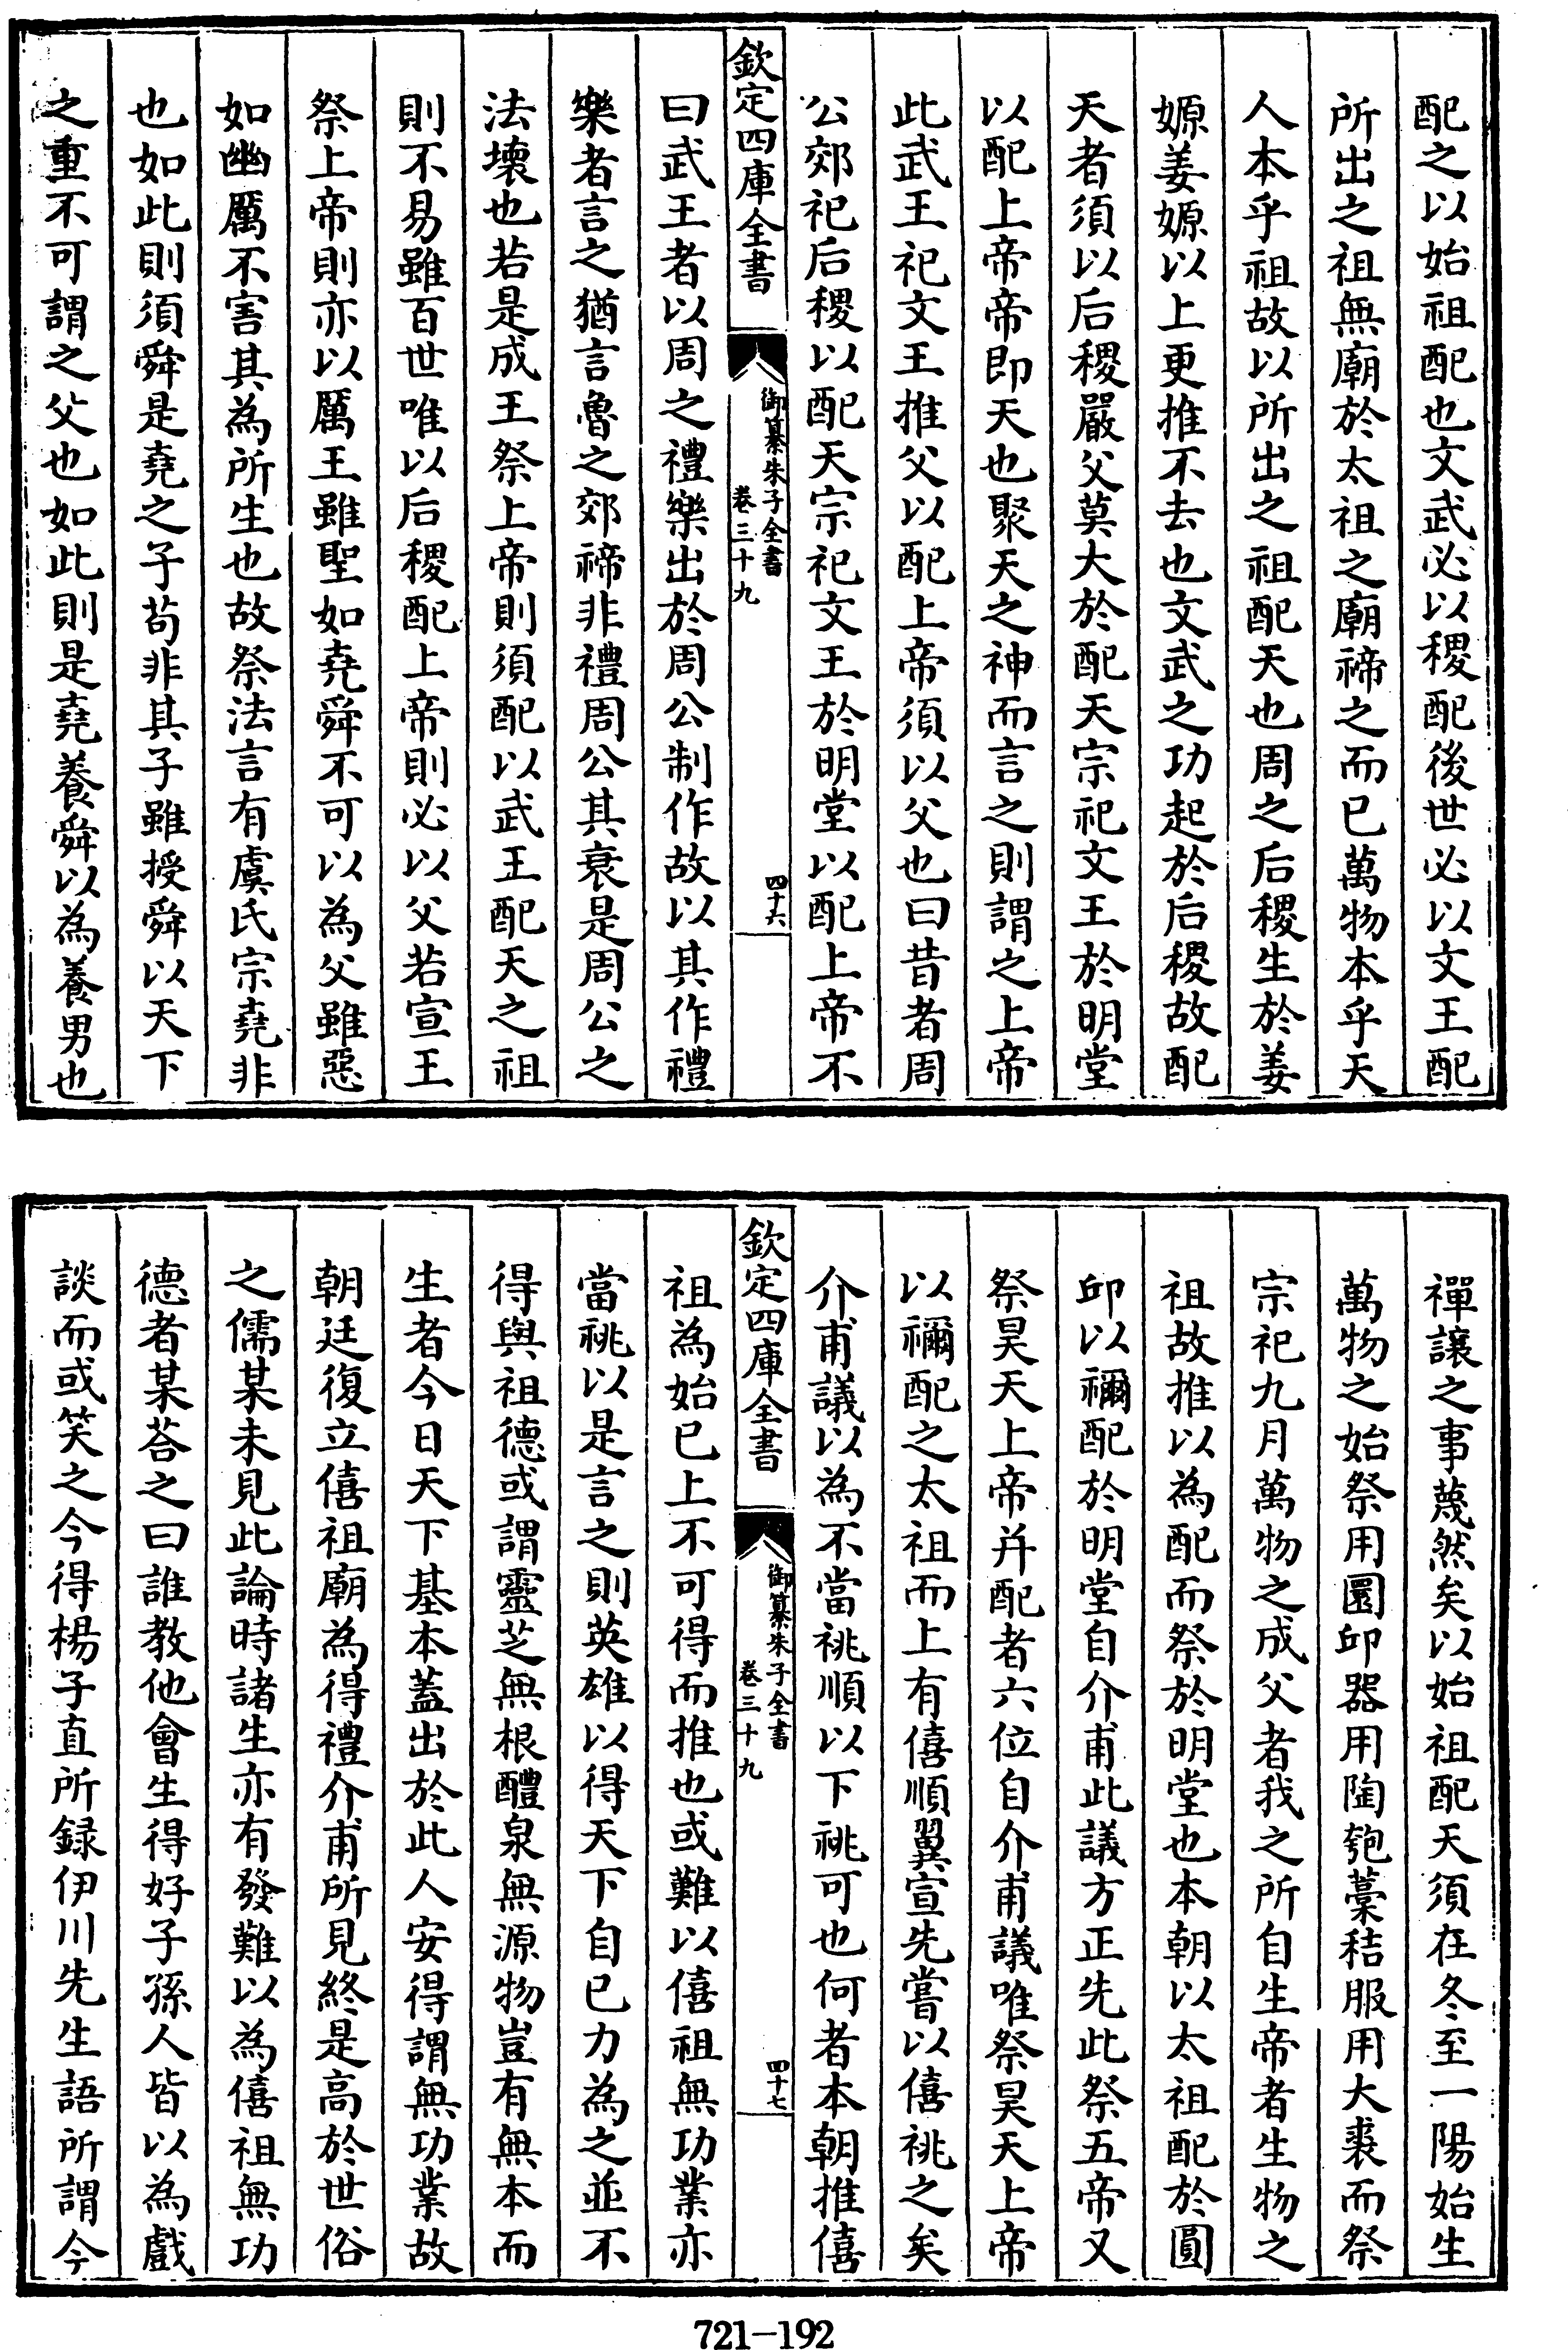 配之以始祖配也文武必以稷配後世必以文王配
所出之祖無廟於太祖之廟禘之而已萬物本乎天
人本乎祖故以所出之祖配天也周之后稷生於姜
嫄姜嫄以上更推不去也文武之功起於后稷故配
天者須以后稷嚴父莫大於配天宗祀文王於明堂
以配上帝帝即天也聚天之神而言之則謂之上帝
此武王祀文王推父以配上帝須以父也曰昔者周
公郊祀后稷以配天宗祀文王於明堂以配上帝不
欽定四庫全書
御纂朱子全書
卷三十九
四十六
曰武王者以周之禮樂出於周公制作故以其作禮
樂者言之猶言魯之郊禘非禮周公其衰是周公之
法壞也若是成王祭上帝則須配以武王配天之祖
則不易雖百世唯以后稷配上帝則必以父若宣王
祭上帝則亦以厲王雖聖如堯舜不可以為父雖惡
如幽厲不害其為所生也故祭法言有虞氏宗堯非
也如此則須舜是堯之子苟非其子雖授舜以天下
之重不可謂之父也如此則是堯養舜以為養男也
禪讓之事蔑然矣以始祖配天須在冬至一陽始生
萬物之始祭用圜邱器用陶匏藁秸服用大裘而祭
宗祀九月萬物之成父者我之所自生帝者生物之
祖故推以為配而祭於明堂也本朝以太祖配於圓
邱以禰配於明堂自介甫此議方正先此祭五帝又
祭昊天上帝并配者六位自介甫議唯祭昊天上帝
以禰配之太祖而上有僖順翼宣先嘗以僖祧之矣
介甫議以為不當祧順以下祧可也何者本朝推僖
欽定四庫全書
御纂朱子全書
卷三十九
四十七
祖為始已上不可得而推也或難以僖祖無功業亦
當祧以是言之則英雄以得天下自己力為之並不
得與祖德或謂靈芝無根醴泉無源物豈有無本而
生者今日天下基本蓋出於此人安得謂無功業故
朝廷復立僖祖廟為得禮介甫所見終是高於世俗
之儒某未見此論時諸生亦有發難以為僖祖無功
德者某荅之曰誰教他會生得好子孫人皆以為戲
談而或笑之今得楊子直所録伊川先生語所謂今
721-192